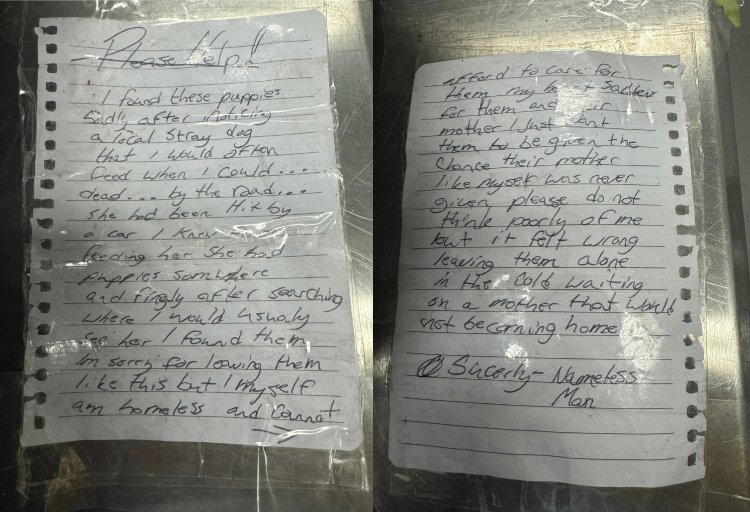 Please Help!!
I found these puppies
Sadly after noticing
a local Stray dog
that I would often
Feed when I could...
dead... by the road...
she had been Hit by
a car I Knew
feeding her She had
puppies somwhere
and finaly after searching
where I would usualy
see her I found them
Im sorry for leaving them
like this but I myself
am homeless and Cannot
afford to care for
them my
for them and
mother I Just
them to be given the
Chance their mother
like myself was never
given please do not
think poorly of me
but it felt wrong
leaving them alone
in the Cold waiting
on a mother that would
not be coming home
Sincerly - Nameless
Man